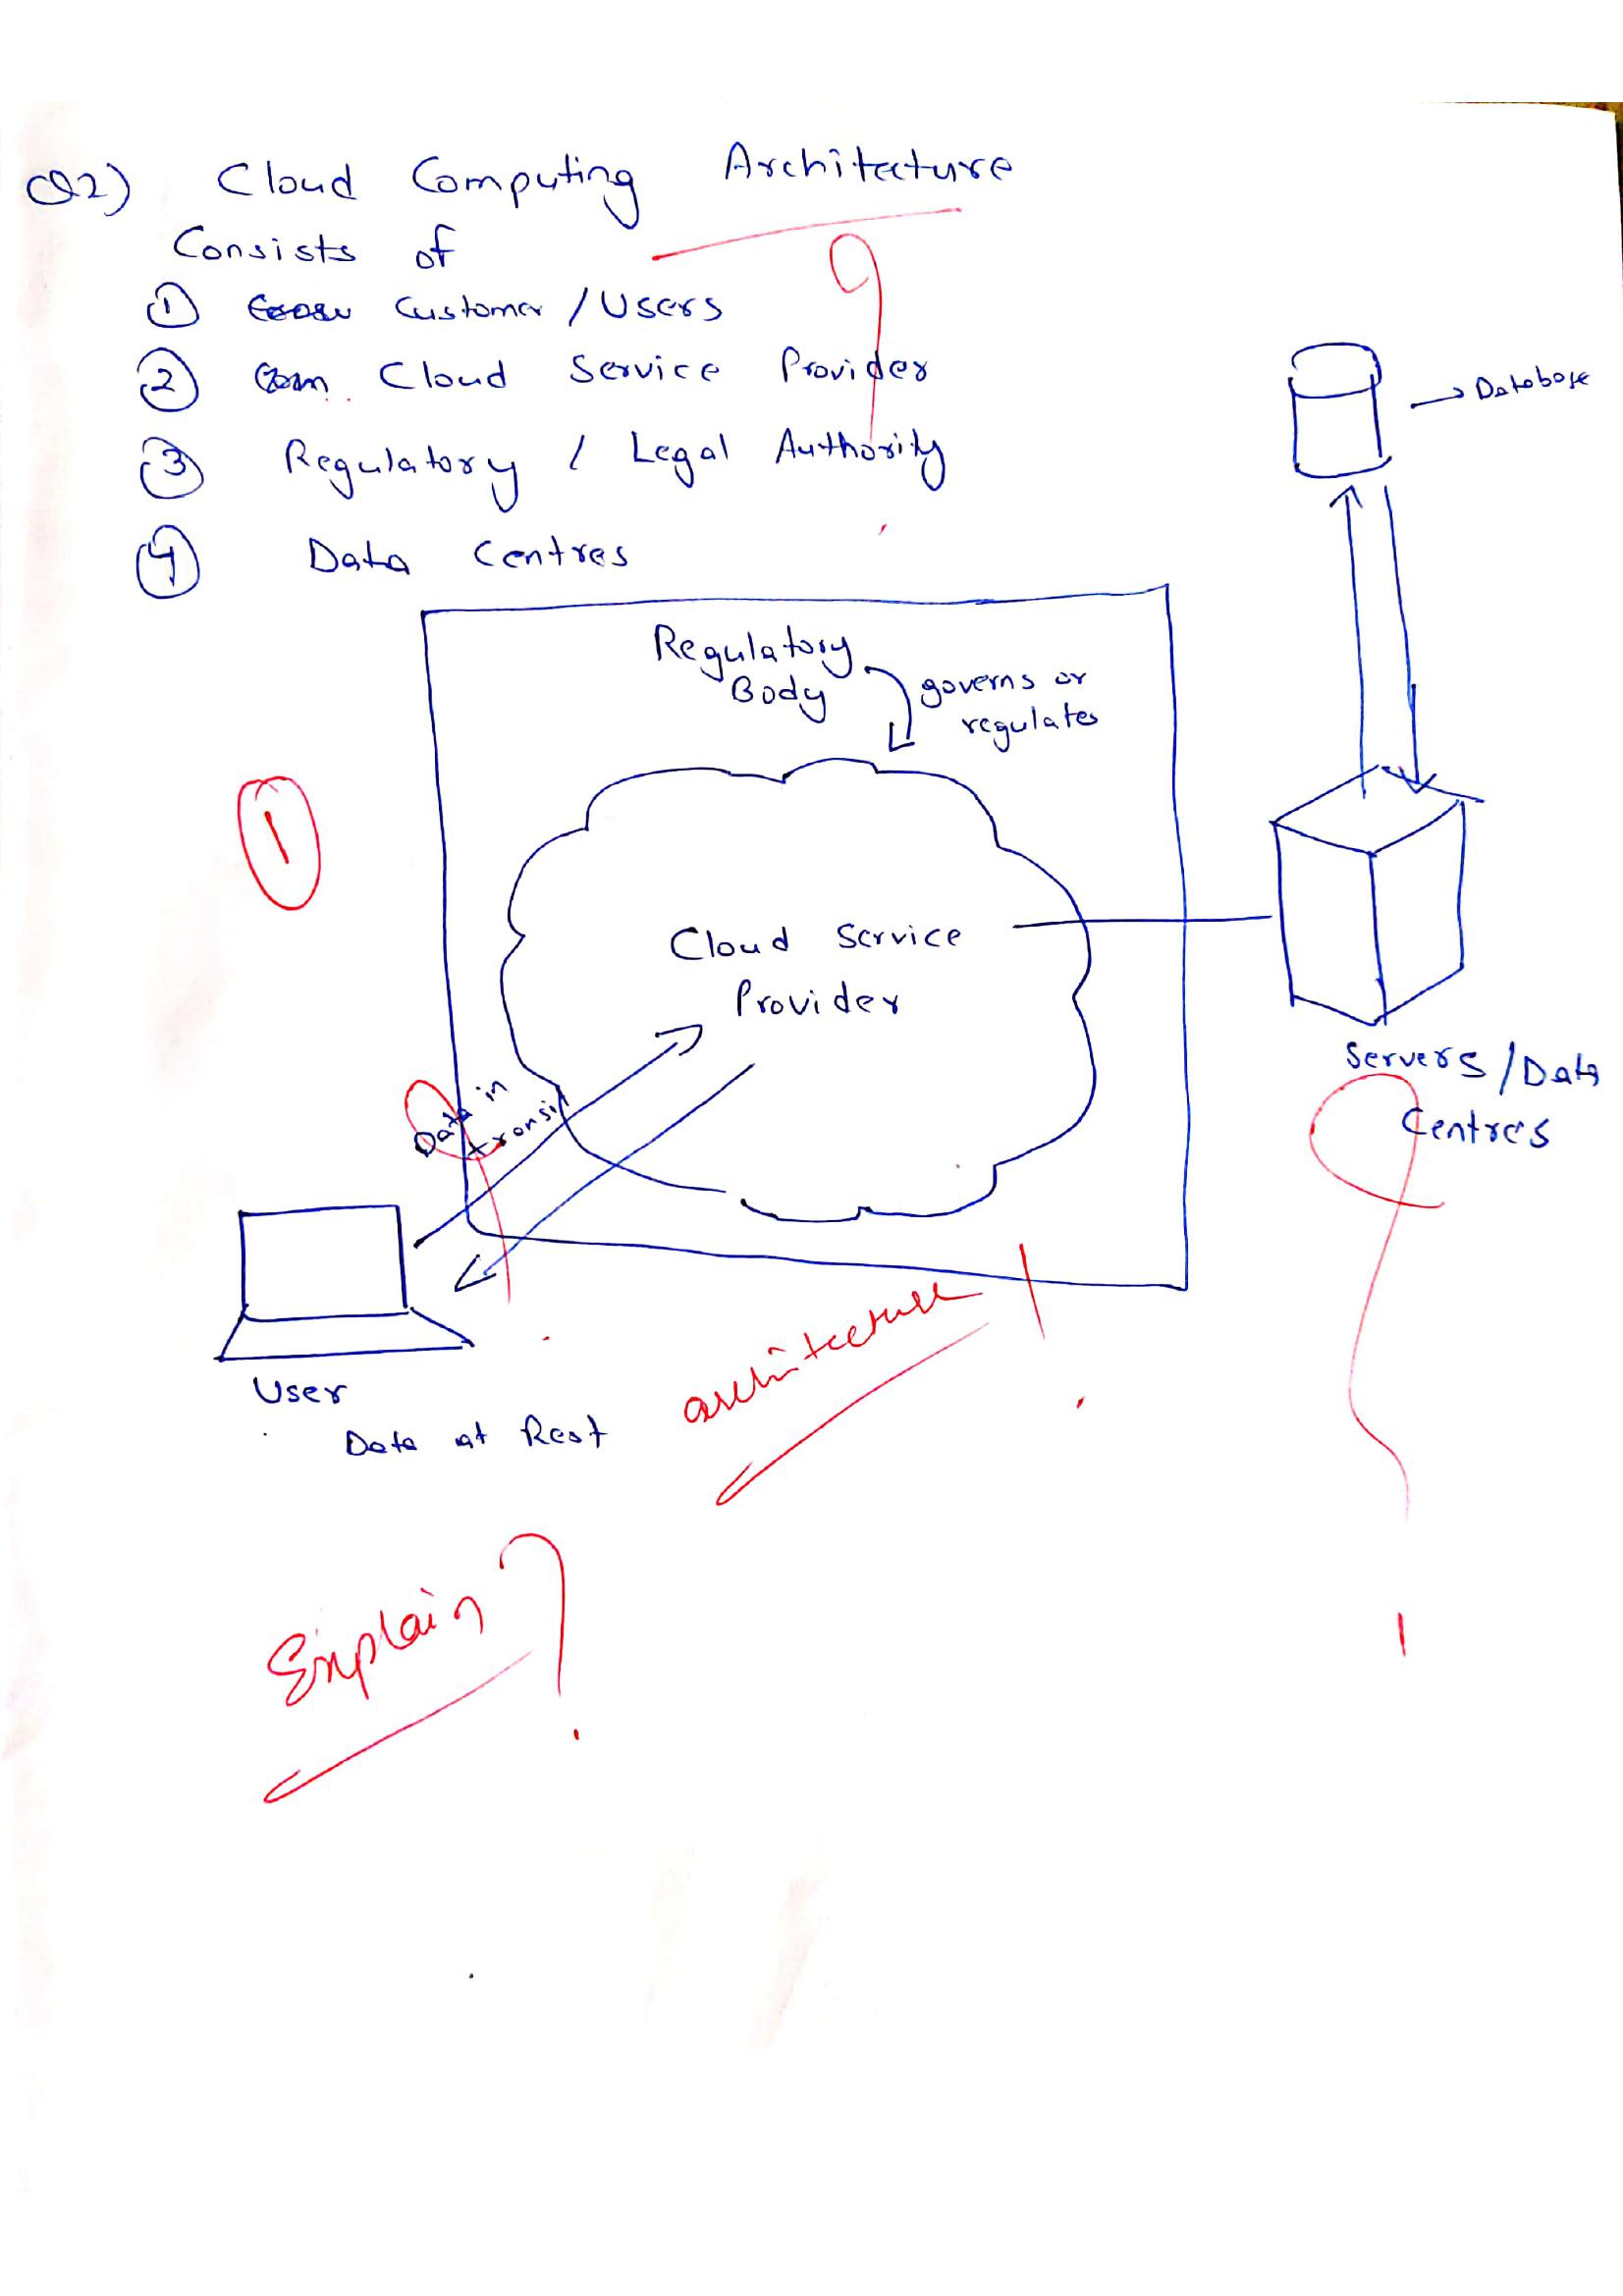 Q2) Cloud Computing Architecture
Consists of
① Customer / Users
② Cloud Service Provider
③ Regulatory / Legal Authority
④ Data Centres
→ Database
Regulatory
Body
governs or
regulates
1
Cloud Service
Provider
Servers / Data
Centres
Data in
transit
User
Data at Rest
architecture
Explain?